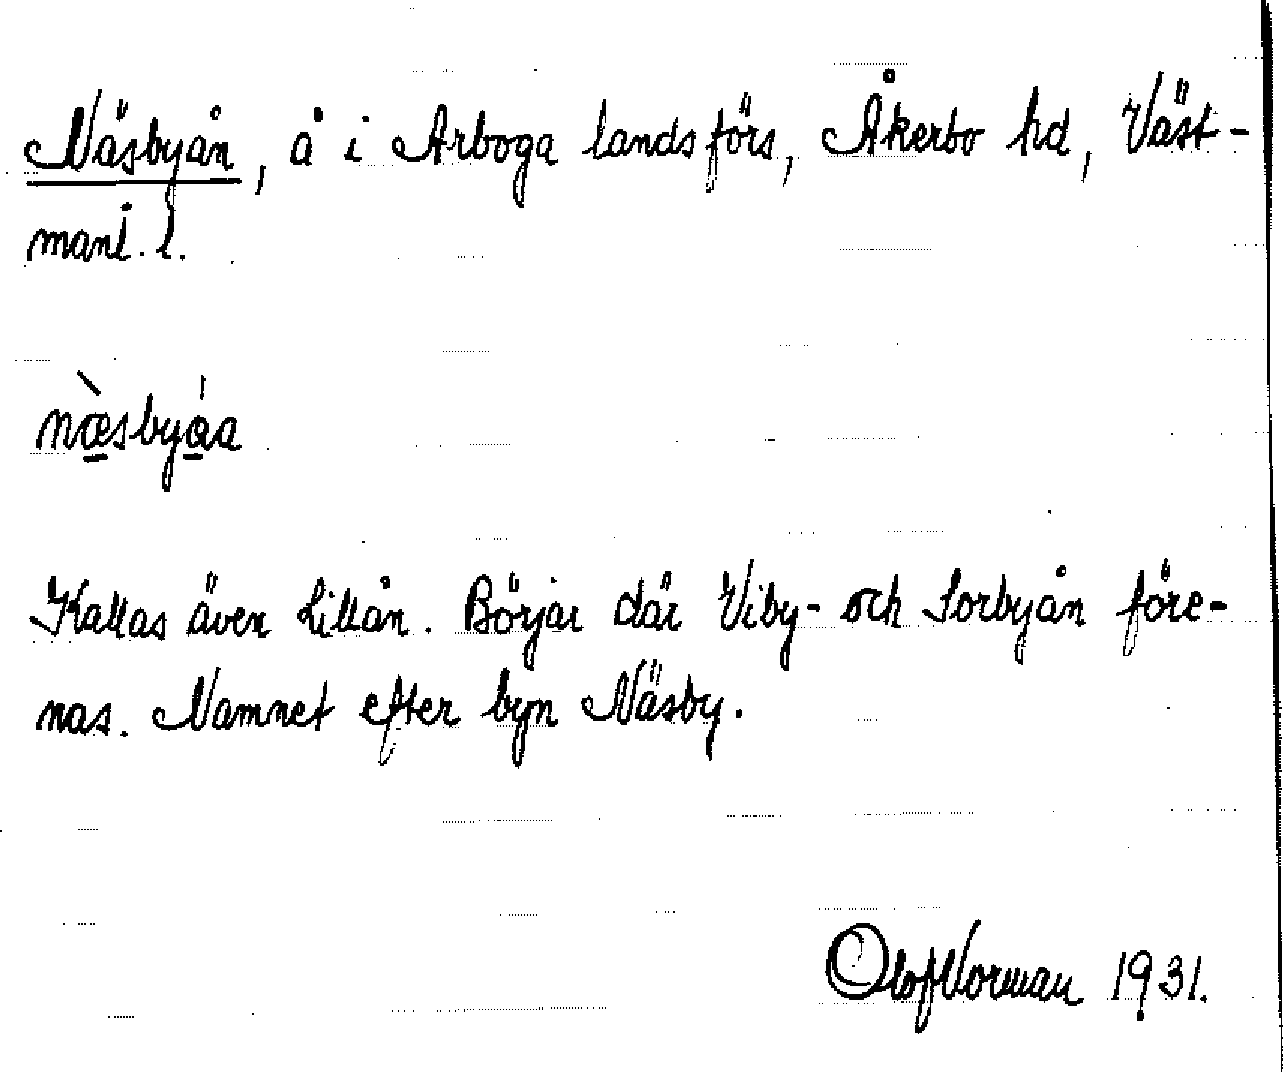 Näsbyån, å i Arboga landsförs, Åkerbo hd, Väst-
manl. l.
næ̀sbyåa
Kallas även Lillån. Börjar där Viby- och Sorbyån före-
nas. Namnet efter byn Näsby.
Olof Norman 1931.